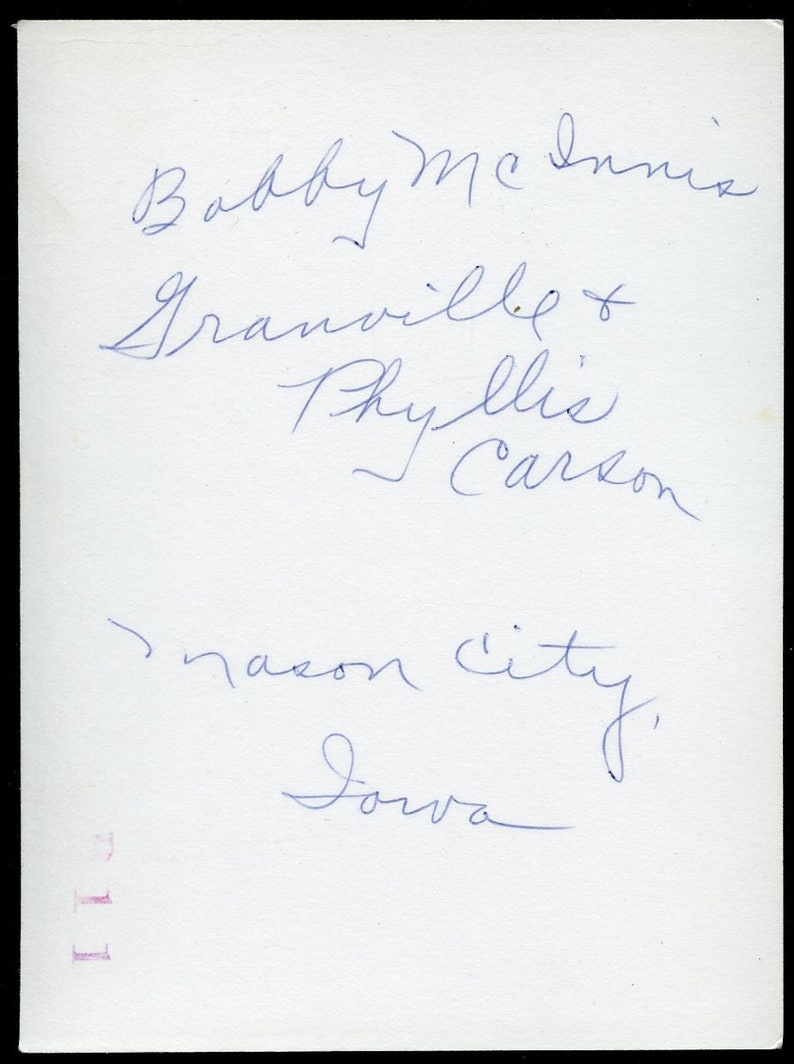 Bobby McInnis
Granville &
Phyllis
Carson
Mason City,
Iowa
11